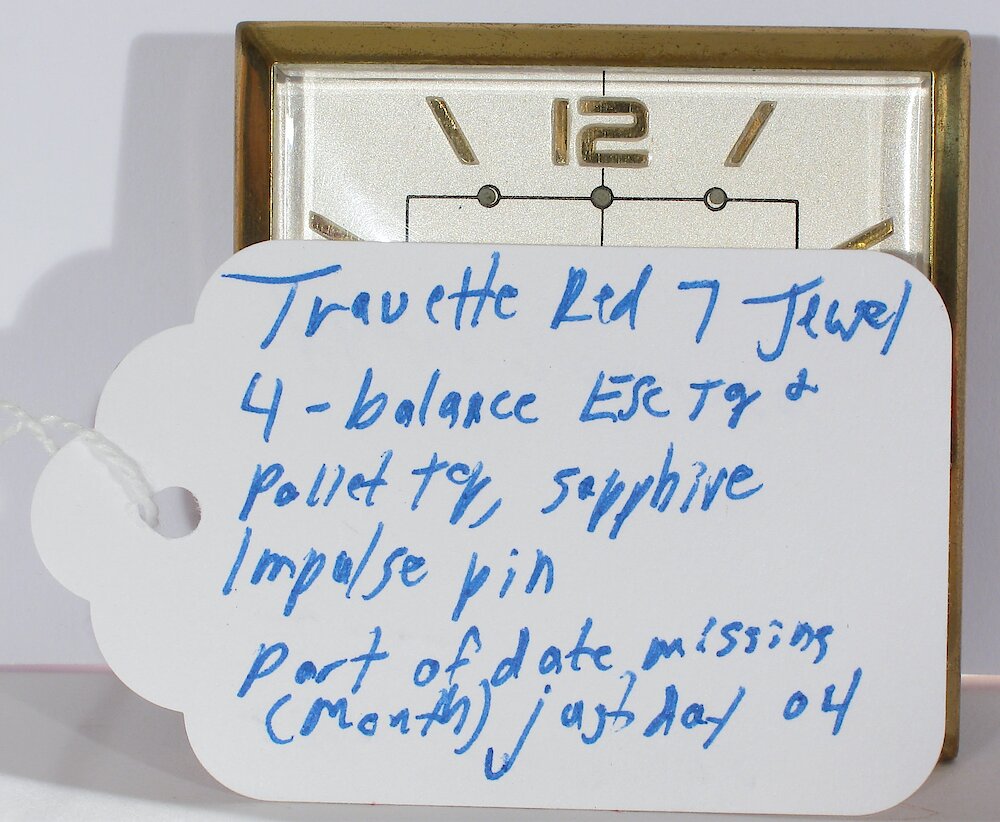 12
Travette Red 7 Jewel
4-balance Esc Tg &
pallet tg, sapphire
Impulse pin
part of date missing
(month) just day 04